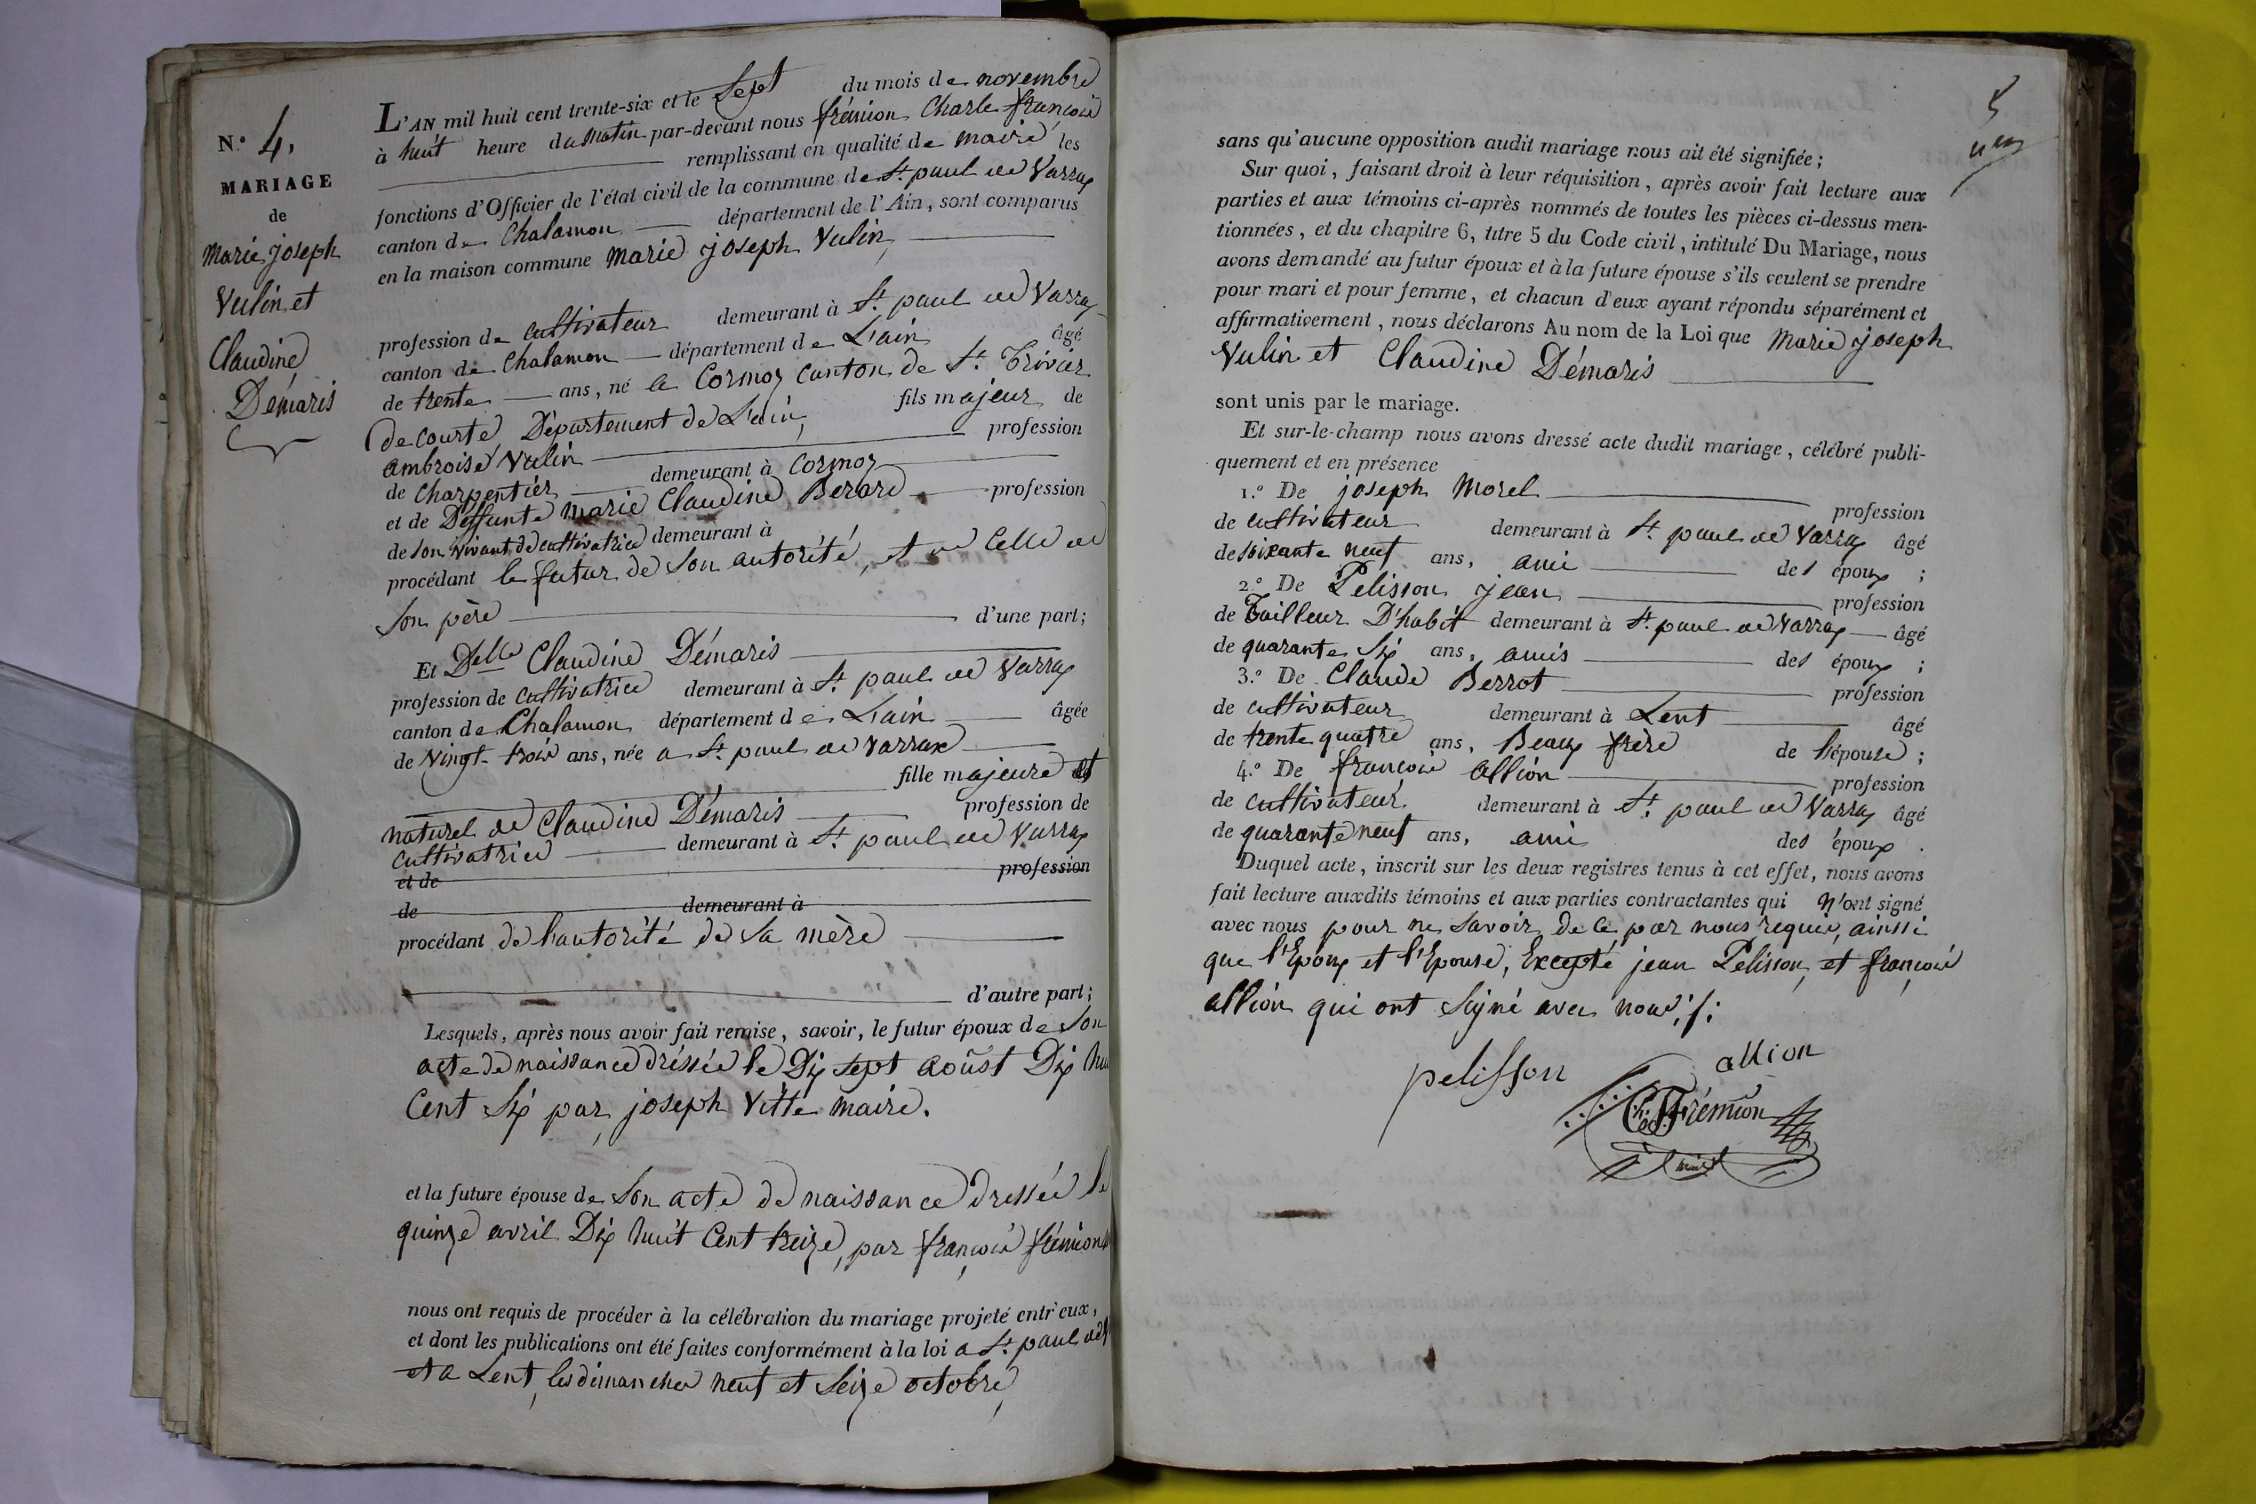 N.° 4,
MARIAGE
de
Marie joseph
Vulin et
Claudine
Démaris
L'AN mil huit cent trente-six et le Sept du mois de novembre
à huit heure du Matin par-devant nous frémion Charle françois
remplissant en qualité de maire les
fonctions d'Officier de l'état civil de la commune de St. paul de Varrax
canton de Chalamon département de l'Ain, sont comparus
en la maison commune Marie joseph Vulin,
profession de cultivateur demeurant à St. paul de Varrax
canton de Chalamon département de L'ain âgé
de trente ans, né a Cormoz canton de St. Trivier
de courte, Département de L'ain, fils majeur de
ambroise Vulin profession
de Charpentier demeurant à Cormoz
et de Deffunte marie Claudine Berard profession
de son vivant de cultivatrice demeurant à
procédant le futur de Son autorité, et de Celle de
Son père d'une part;
Et Delle Claudine Démaris
profession de cultivatrice demeurant à St. paul de Varrax
canton de Chalamon département de L'ain âgée
de Vingt-trois ans, née a St. paul de Varrax
fille majeure et
naturel de Claudine Démaris profession de
cultivatrice demeurant à St. paul de Varrax
et de profession
de demeurant à
procédant de l'autorité de Sa mère
d'autre part;
Lesquels, après nous avoir fait remise, savoir, le futur époux de Son
acte de naissance dréssée le Dix sept aoûst Dix
Cent Six par joseph Vitte maire.
et la future épouse de Son acte de naissance dressée le
quinze avril Dix huit Cent treize, par françois frémion
nous ont requis de procéder à la célébration du mariage projeté entr'eux,
et dont les publications ont été faites conformément à la loi a St. paul de
et a Lent, les dimanches neuf et Seize octobre,
5
sans qu'aucune opposition audit mariage nous ait été signifiée;
Sur quoi, faisant droit à leur réquisition, après avoir fait lecture aux
parties et aux témoins ci-après nommés de toutes les pièces ci-dessus men-
tionnées, et du chapitre 6, titre 5 du Code civil, intitulé Du Mariage, nous
avons demandé au futur époux et à la future épouse s'ils veulent se prendre
pour mari et pour femme, et chacun d'eux ayant répondu séparément et
affirmativement, nous déclarons Au nom de la Loi que Marie joseph
Vulin et Claudine Démaris
sont unis par le mariage.
Et sur-le-champ nous avons dressé acte dudit mariage, célébré publi-
quement et en présence
1.° De joseph Morel profession
de cultivateur demeurant à St. paul de Varrax âgé
de soixante neuf ans, ami des époux ;
2.° De Pelisson jean profession
de Tailleur D'habit demeurant à St. paul de Varrax âgé
de quarante Six ans, amis des époux ;
3.° De Claude Berrot profession
de cultivateur demeurant à Lent âgé
de trente quatre ans, Beaux frère de l'épouse ;
4.° De françois allion profession
de cultivateur demeurant à St. paul de Varrax âgé
de quarante neuf ans, ami des époux .
Duquel acte, inscrit sur les deux registres tenus à cet effet, nous avons
fait lecture auxdits témoins et aux parties contractantes qui n'ont signé
avec nous pour ne Savoir, de ce par nous requis, ainsi
que l'Epoux et l'Epouse, Excepté jean Pelisson, et françois
allion qui ont Signé avec nous ./.
pelisson allion
Ch. Frémion